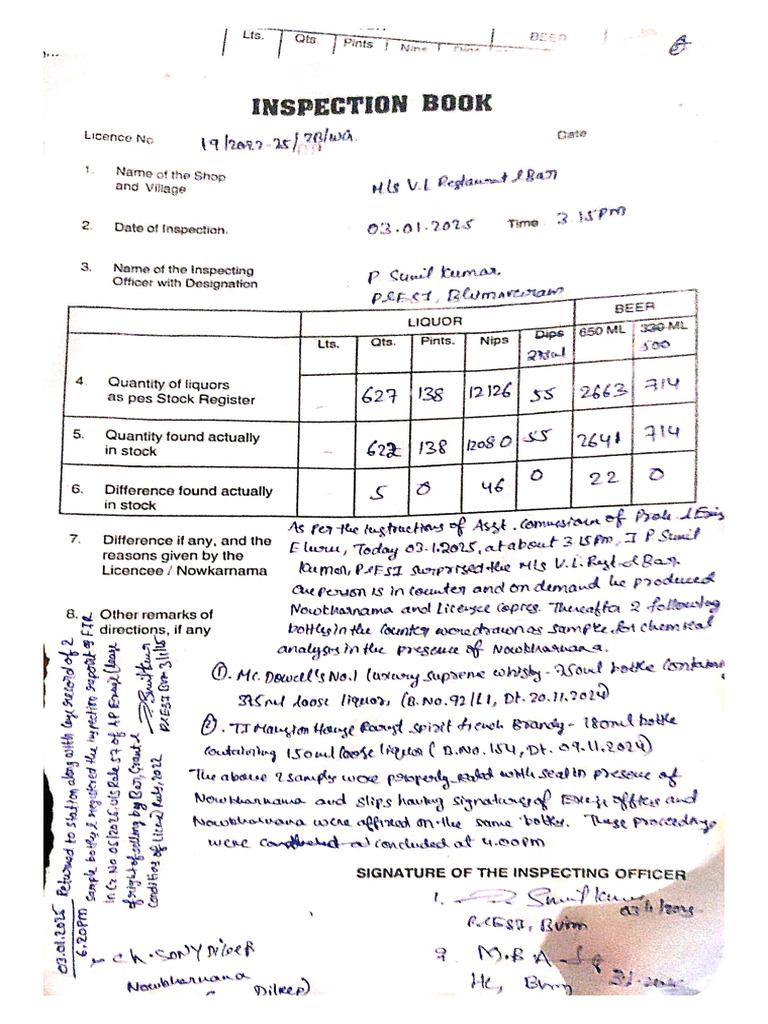 Lts. Qts. Pints Nips Dips BEER
INSPECTION BOOK
Licence No 19/2022-25/2B/WG. Date
1. Name of the Shop and Village M/s V.L Restaurant & Bar
2. Date of Inspection. 03.01.2025 Time 3.15PM
3. Name of the Inspecting Officer with Designation P Sunil Kumar,
P&ESI, Bhimavaram
LIQUOR BEER
Lts. Qts. Pints. Nips Dips 650 ML 330 ML
500
4. Quantity of liquors as pes Stock Register - 627 138 12126 55 2663 714
5. Quantity found actually in stock - 622 138 12080 55 2641 714
6. Difference found actually in stock 5 0 46 0 22 0
7. Difference if any, and the reasons given by the Licencee / Nowkarnama
8. Other remarks of directions, if any
As Per the instructions of Asst. Commissioner of Proh. & Excise
Eluru, Today 03.1.2025, at about 3.15pm, I P Sunil
Kumar, P&ESI surprised the M/s V.L. Rest. & Bar.
One person is in counter and on demand he produced
Nowkharnama and Licence Copies. Thereafter 2 following
bottles in the counter were drawn as sample for chemical
analysis in the presence of Nowkharnama.
①. Mc. Dowell's No.1 luxury supreme whisky - 750ml bottle containing
375ml loose liquor, (B.No.92/L1, Dt. 20.11.2024)
②. TI Mansion House Rarest spirit french Brandy - 180ml bottle
containing 150ml loose liquor (B.No.154, Dt. 09.11.2024)
The above 2 samples were properly sealed with seal in presence of
Nowkharnama and slips having signatures of Excise officers and
Nowkharnama were affixed on the same bottles. These proceedings
were concluded at 4.00pm
03.01.2025 Returned to station along with record of 2
6.20PM sample bottles & registered the inspection report of FIR
in Cr No 05/2025 u/s Rule 57 of AP Excise (
of right of selling by Bar, Grant &
Condition of licence) Rules, 2022
P&ESI Bvrm 3/1/25
SIGNATURE OF THE INSPECTING OFFICER
1. Sunil Kumar 03/1/2025
P&ESI, Bvrm
2. M.B.A
HC, Bvrm
Ch. SONY DILEEP
Nowkharnama
Dileep)